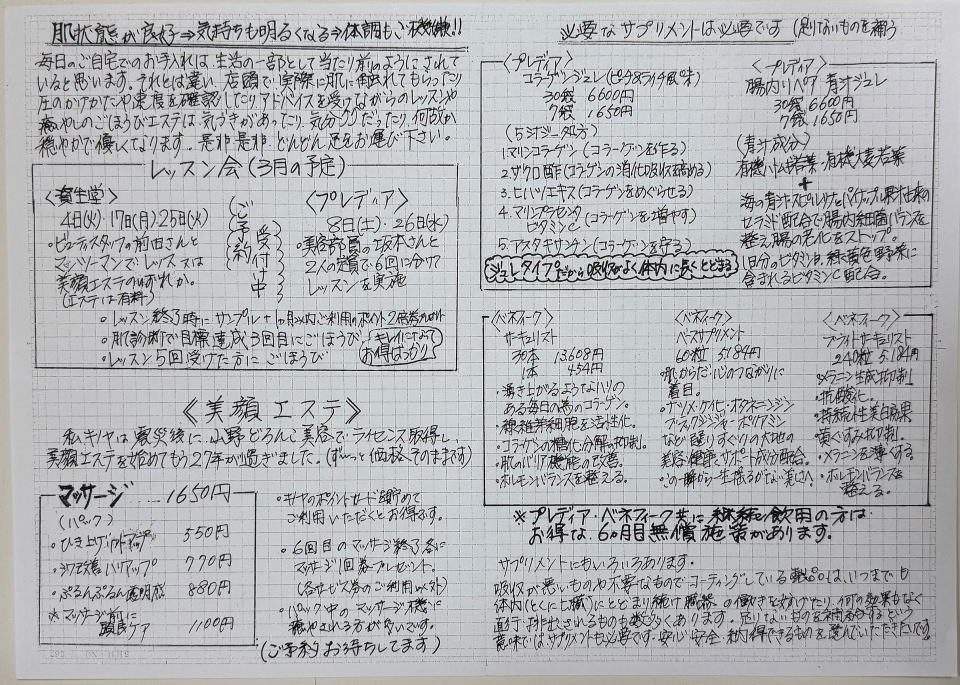 肌状態が良好⇒気持ちも明るくなる⇒体調もご機嫌!!
毎日のご自宅でのお手入れは、生活の一部として当たり前のようにされて
いると思います。それとは違い、店頭で実際に肌に触れてもらったり
圧のかけかたや速度を確認したり、アドバイスを受けながらのレッスンや
癒やしのごほうびエステは、気づきがあったり、気分が
穏やかで優しくなります。是非是非どんどん足をお運び下さい。
レッスン会(3月の予定)
〈資生堂〉
4日(火)・17日(月)・25日(火)
・ビューティスタッフの前田さんと
マンツーマンでレッスン又は
美顔エステのいずれか。
(エステは有料)
ご予約受付中
〈プレディア〉
8日(土)・26日(水)
美容部員の坂本さんと
2人の定員で6回に分けて
レッスンを実施
・レッスン終了時にサンプル+1ヵ月以内ご利用のポイント2倍券
・肌診断で目標達成3回目にごほうび
・レッスン5回受けた方にごほうび
キレイになって
お得ばっかり
《美顔エステ》
私キノヤは震災後に、山野どろんこ美容でライセンス取得し、
美顔エステを始めてもう27年が過ぎました。(ずーっと価格そのままです)
マッサージ…1650円
(パック)
・ひき上げリフトアップ 550円
・ハリアップ 770円
・ぷるんぷるん透明感 880円
※マッサージ前に
ケア 1100円
・キノヤのポイントカード貯めて
ご利用いただくとお得です。
・6回目のマッサージ終了名に
マッサージ1回券プレゼント。
(各サービス券のご利用以外)
・パック中のマッサージ
癒やされる方が多いです。
(ご予約お待ちしてます)
必要なサプリメントは必要です(足りないものを補う)
〈プレディア〉
コラーゲンジュレ(ピーチ&ライチ風味)
30袋 6600円
7袋 1650円
(5ジジー処方)
1.マリンコラーゲン(コラーゲンを作る)
2.ザクロ酢(コラーゲンの消化吸収を高める)
3.ヒハツエキス(コラーゲンをめぐらせる)
4.マリンプラセンタ
ビタミンC(コラーゲンを増やす)
5.アスタキサンチン(コラーゲンを守る)
ジュレタイプだから吸収がよく体内に長くとどまる
〈プレディア〉
腸内リペア 青汁ジュレ
30袋 6600円
7袋 1650円
(青汁成分)
有機ハム若葉・有機大麦若葉
+
海の青汁スピルリナとパイナップル果汁由来の
セラミド配合で腸内細菌バランスを
整え腸の老化をストップ。
1日分のビタミンB、緑黄色野菜に
含まれるビタミンC配合。
〈ベネフィーク〉
サーキュリスト
30本 13,608円
1本 454円
・湧き上がるようなハリの
ある毎日の為のコラーゲン。
・線維芽細胞を活性化。
・コラーゲンの糖化分解の抑制。
・肌のバリア機能の改善。
・ホルモンバランスを整える。
〈ベネフィーク〉
ベースサプリメント
60粒 5,184円
・肌・からだ・心のつながりに
着目。
・ナツメ・ケイヒ・オタネニンジン
ブラックジンジャー・ポリアミン
など選りすぐりの大地の
美容・健康をサポート成分配合。
・この瞬から一生揺るがない美しさ。
〈ベネフィーク〉
ブライトサーキュリスト
240粒 5,184円
・メラニン生成抑制
・抗酸化。
・持続性美白効果
・黄ぐすみ抑制。
・メラニンを薄くする。
・ホルモンバランスを
整える。
※プレディア・ベネフィーク共に継続飲用の方は
お得な、6ヵ月目無償施策があります。
サプリメントにもいろいろあります。
吸収が悪いものや不要なものでコーティングしている製品は、いつまでも
体内(とくに心臓)にとどまり続け臓器の働きを妨げたり、何の効果もなく
直行で排出されるものも数多くあります。足りないものを補給するという
意味ではサプリメントも必要です。安心・安全・納得できるものを選んでいただきたいです。